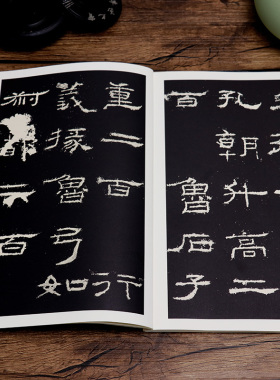 孔朝升高二
百魯石子
重二百行
義掾魯弓如
叔都二百